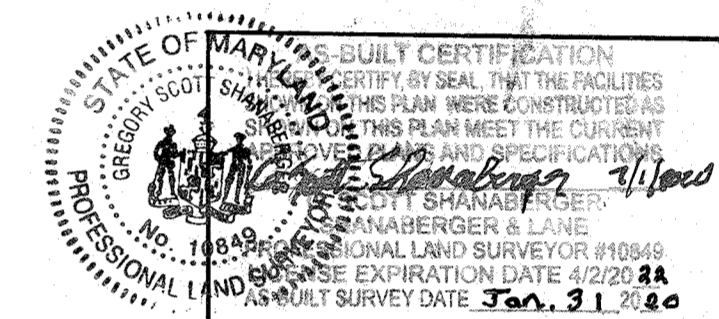 STATE OF MARYLAND
GREGORY SCOTT SHANABERGER
No. 10849
PROFESSIONAL LAND SURVEYOR
AS-BUILT CERTIFICATION
CERTIFY, BY SEAL, THAT THE FACILITIES
SHOWN ON THIS PLAN WERE CONSTRUCTED AS
SHOWN ON THIS PLAN MEET THE CURRENT
APPROVED PLANS AND SPECIFICATIONS
Shanaberger
SCOTT SHANABERGER
SHANABERGER & LANE
PROFESSIONAL LAND SURVEYOR #10849
LICENSE EXPIRATION DATE 4/2/2022
AS-BUILT SURVEY DATE Jan. 31 2020